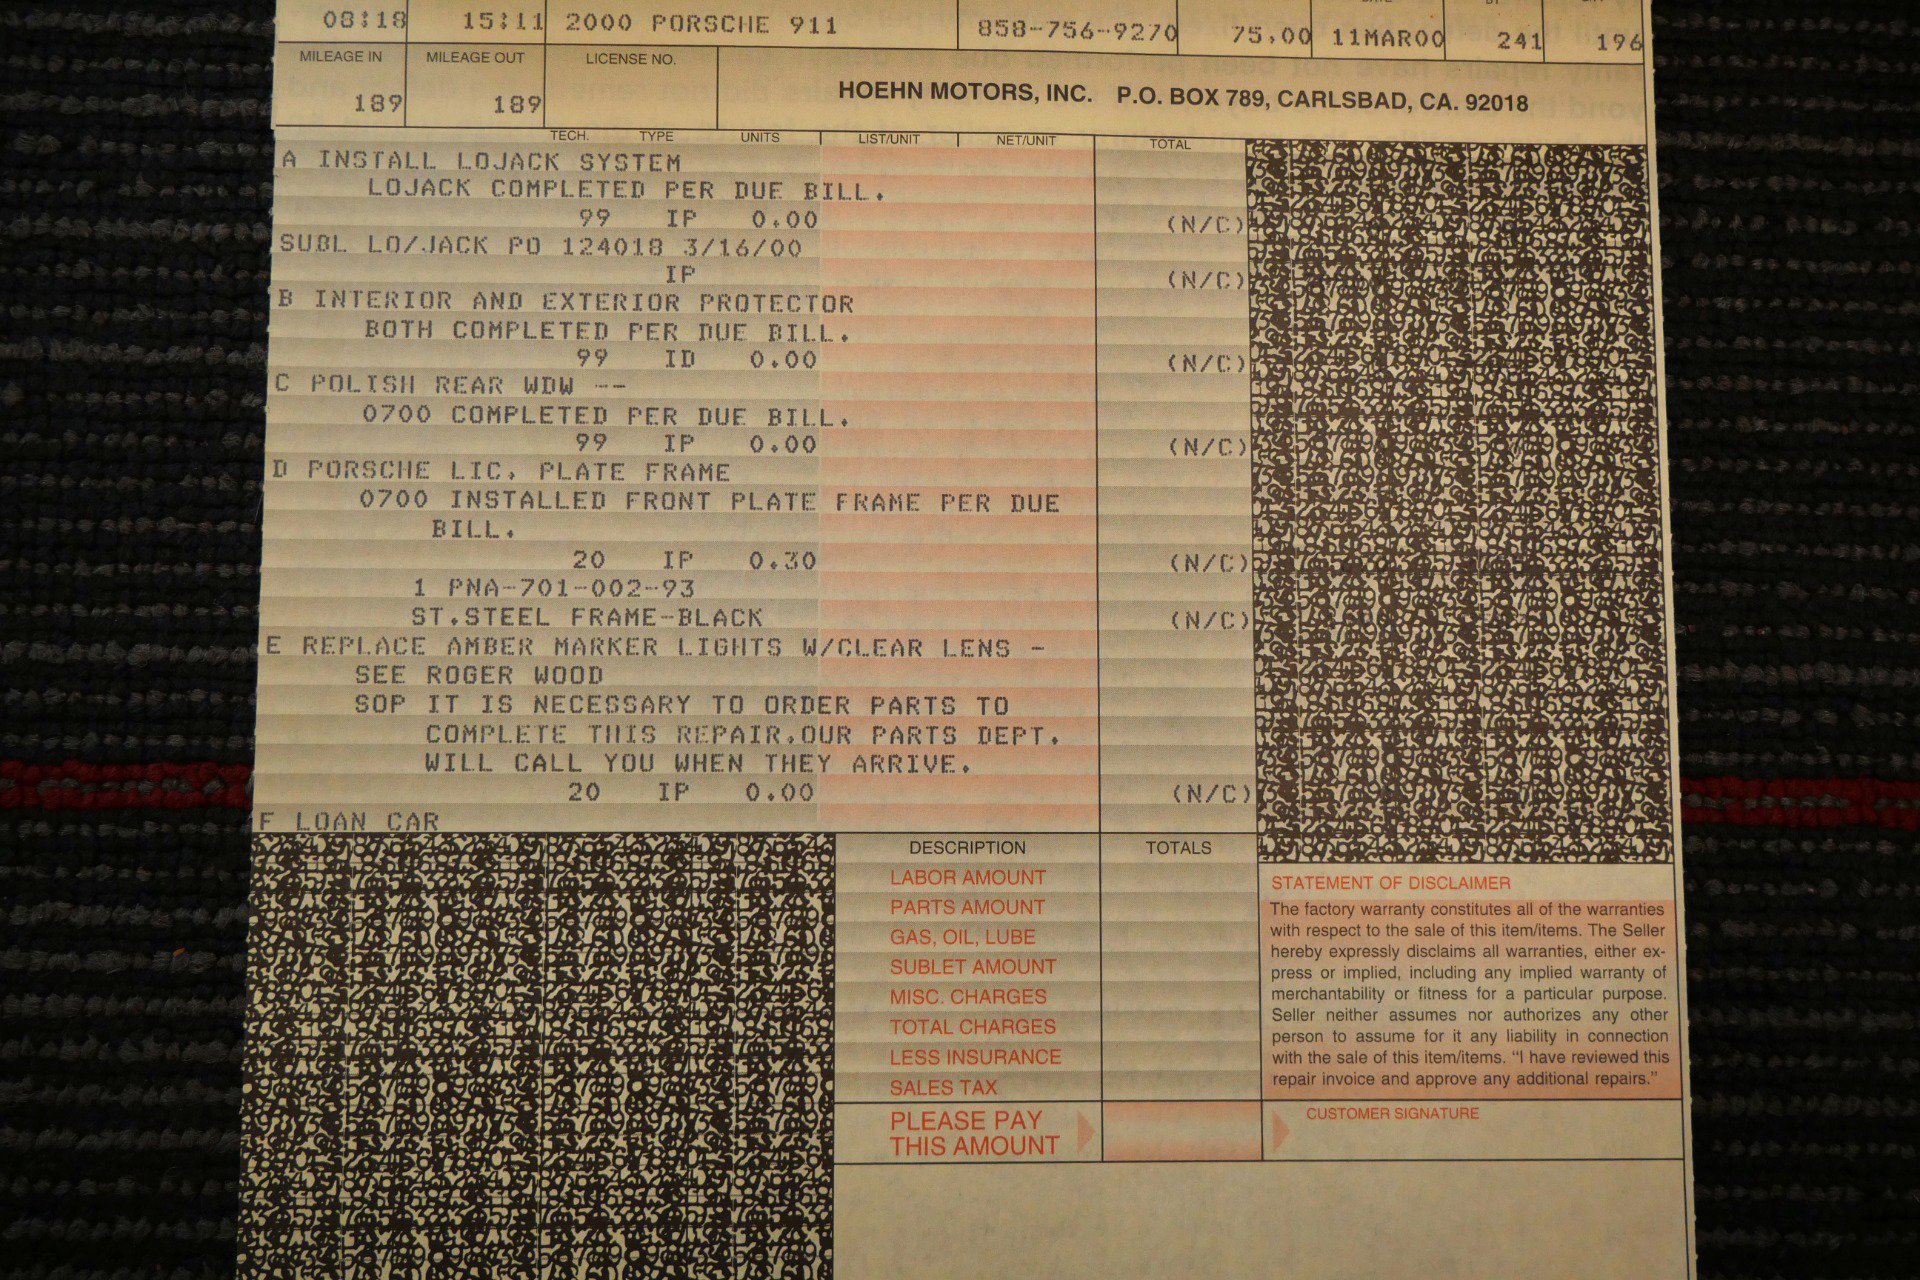 08:18 15:11 2000 PORSCHE 911 858-756-9270 75.00 11MAR00 241 196
MILEAGE IN MILEAGE OUT LICENSE NO.
189 189 HOEHN MOTORS, INC. P.O. BOX 789, CARLSBAD, CA. 92018
TECH. TYPE UNITS LIST/UNIT NET/UNIT TOTAL
A INSTALL LOJACK SYSTEM
LOJACK COMPLETED PER DUE BILL.
99 IP 0.00 (N/C)
SUBL LO/JACK PO 124018 3/16/00
IP (N/C)
B INTERIOR AND EXTERIOR PROTECTOR
BOTH COMPLETED PER DUE BILL.
99 ID 0.00 (N/C)
C POLISH REAR WDW --
0700 COMPLETED PER DUE BILL.
99 IP 0.00 (N/C)
D PORSCHE LIC. PLATE FRAME
0700 INSTALLED FRONT PLATE FRAME PER DUE
BILL.
20 IP 0.30 (N/C)
1 PNA-701-002-93
ST.STEEL FRAME-BLACK (N/C)
E REPLACE AMBER MARKER LIGHTS W/CLEAR LENS -
SEE ROGER WOOD
SOP IT IS NECESSARY TO ORDER PARTS TO
COMPLETE THIS REPAIR.OUR PARTS DEPT.
WILL CALL YOU WHEN THEY ARRIVE.
20 IP 0.00 (N/C)
F LOAN CAR
DESCRIPTION TOTALS
LABOR AMOUNT
PARTS AMOUNT
GAS, OIL, LUBE
SUBLET AMOUNT
MISC. CHARGES
TOTAL CHARGES
LESS INSURANCE
SALES TAX
PLEASE PAY
THIS AMOUNT
STATEMENT OF DISCLAIMER
The factory warranty constitutes all of the warranties
with respect to the sale of this item/items. The Seller
hereby expressly disclaims all warranties, either ex-
press or implied, including any implied warranty of
merchantability or fitness for a particular purpose.
Seller neither assumes nor authorizes any other
person to assume for it any liability in connection
with the sale of this item/items. “I have reviewed this
repair invoice and approve any additional repairs.”
CUSTOMER SIGNATURE